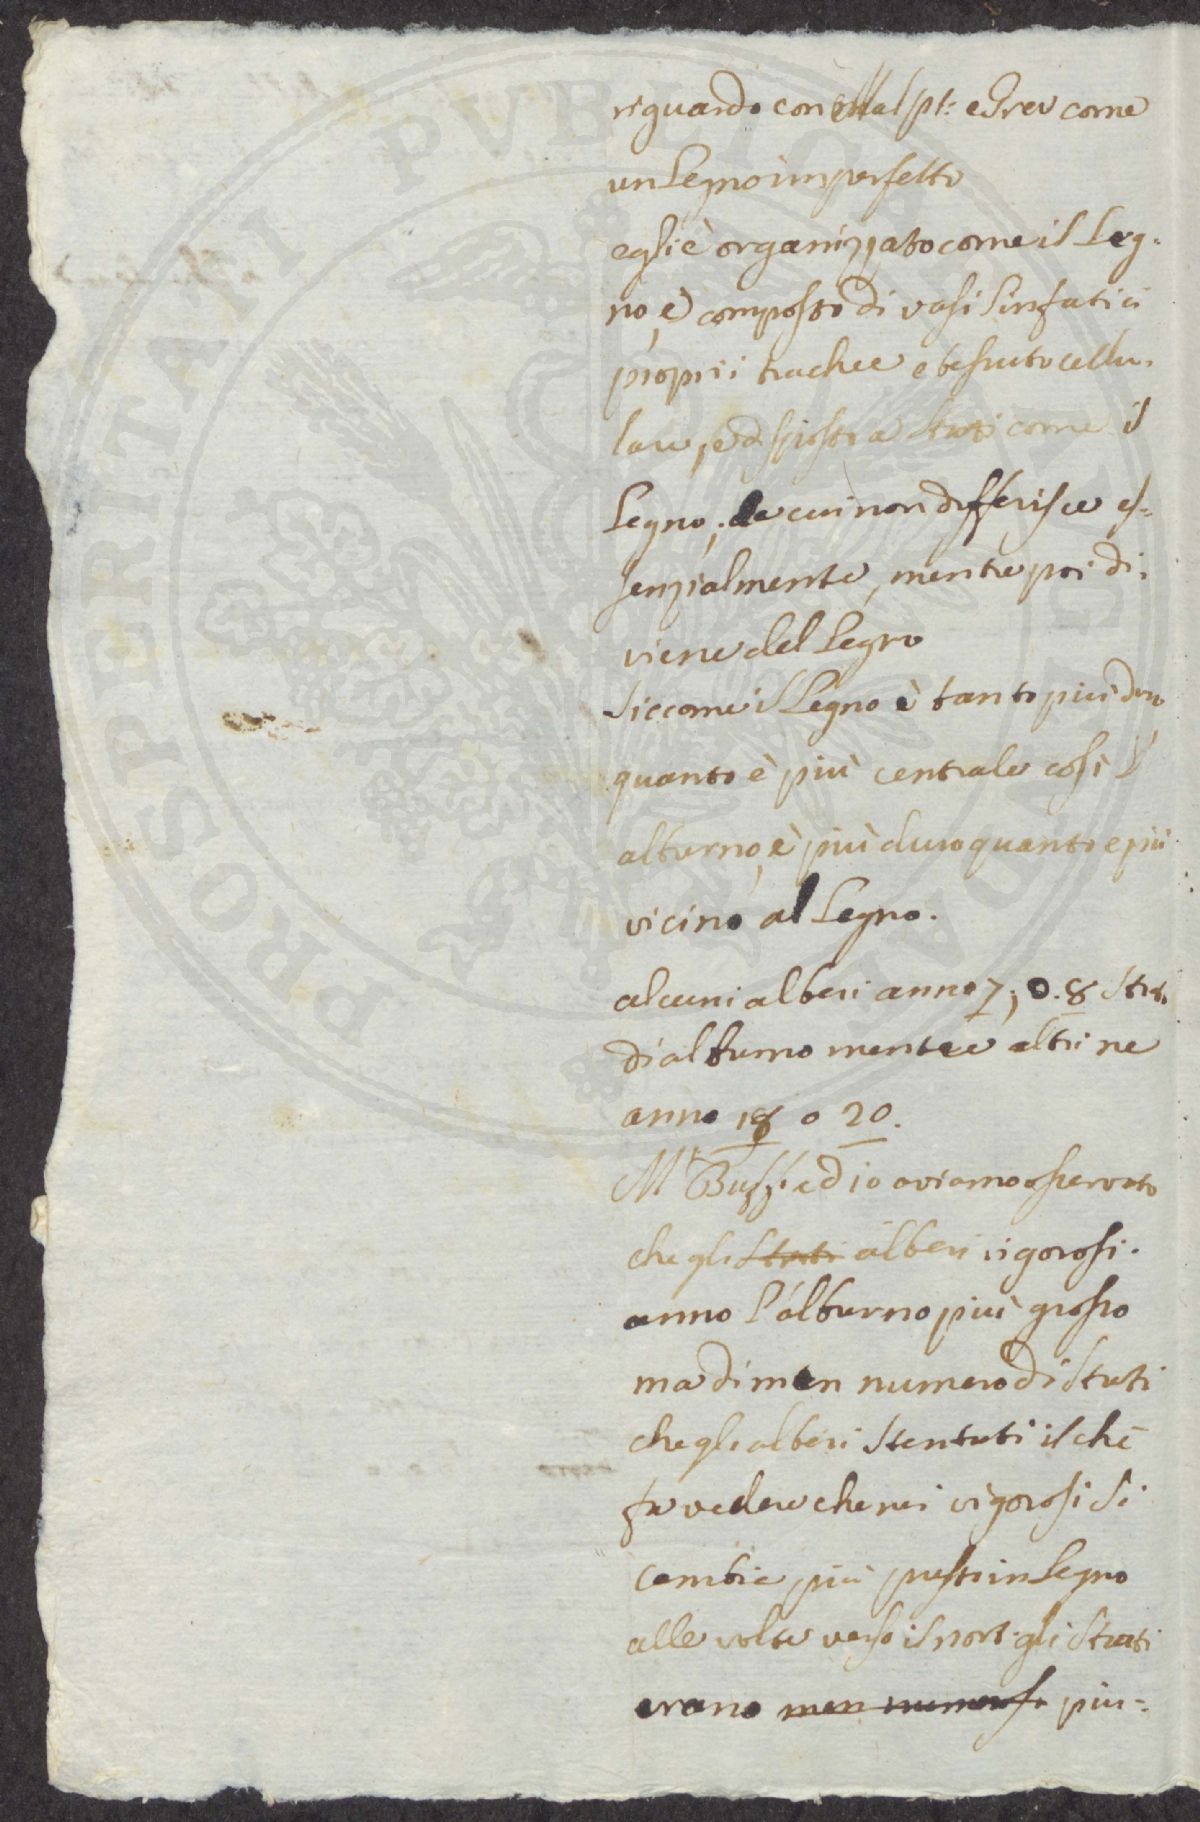 riguardo con Mal pi: e Grew come
un Legno imperfetto
egli è organizzato come il Leg-
no, e composto di vasi linfatici
proprii trachee e tessuto cellu-
lare, e disposto a Strati come il
Legno, da cui non differisce es-
senzialmente, mentre poi di-
viene del Legno
Siccome il Legno è tanto più duro
quanto è più centrale così l'
alburno, è più duro quanto e più
vicino al Legno.
alcuni alberi anno 7, o. 8 Strati
di alburno mentre altri ne
anno 18 o 20.
Mr Buff. ed io aviamo osservato
che gli Strati alberi vigorosi.
anno l'alburno più grosso
ma di men numero di Strati
che gli alberi Stentati il che
fa vedere che nei vigorosi Si
cambia più presto in Legno
alle volte verso il nort gli Strati
erano men numerosi piu-
PROSPERITATI PVBLICAE